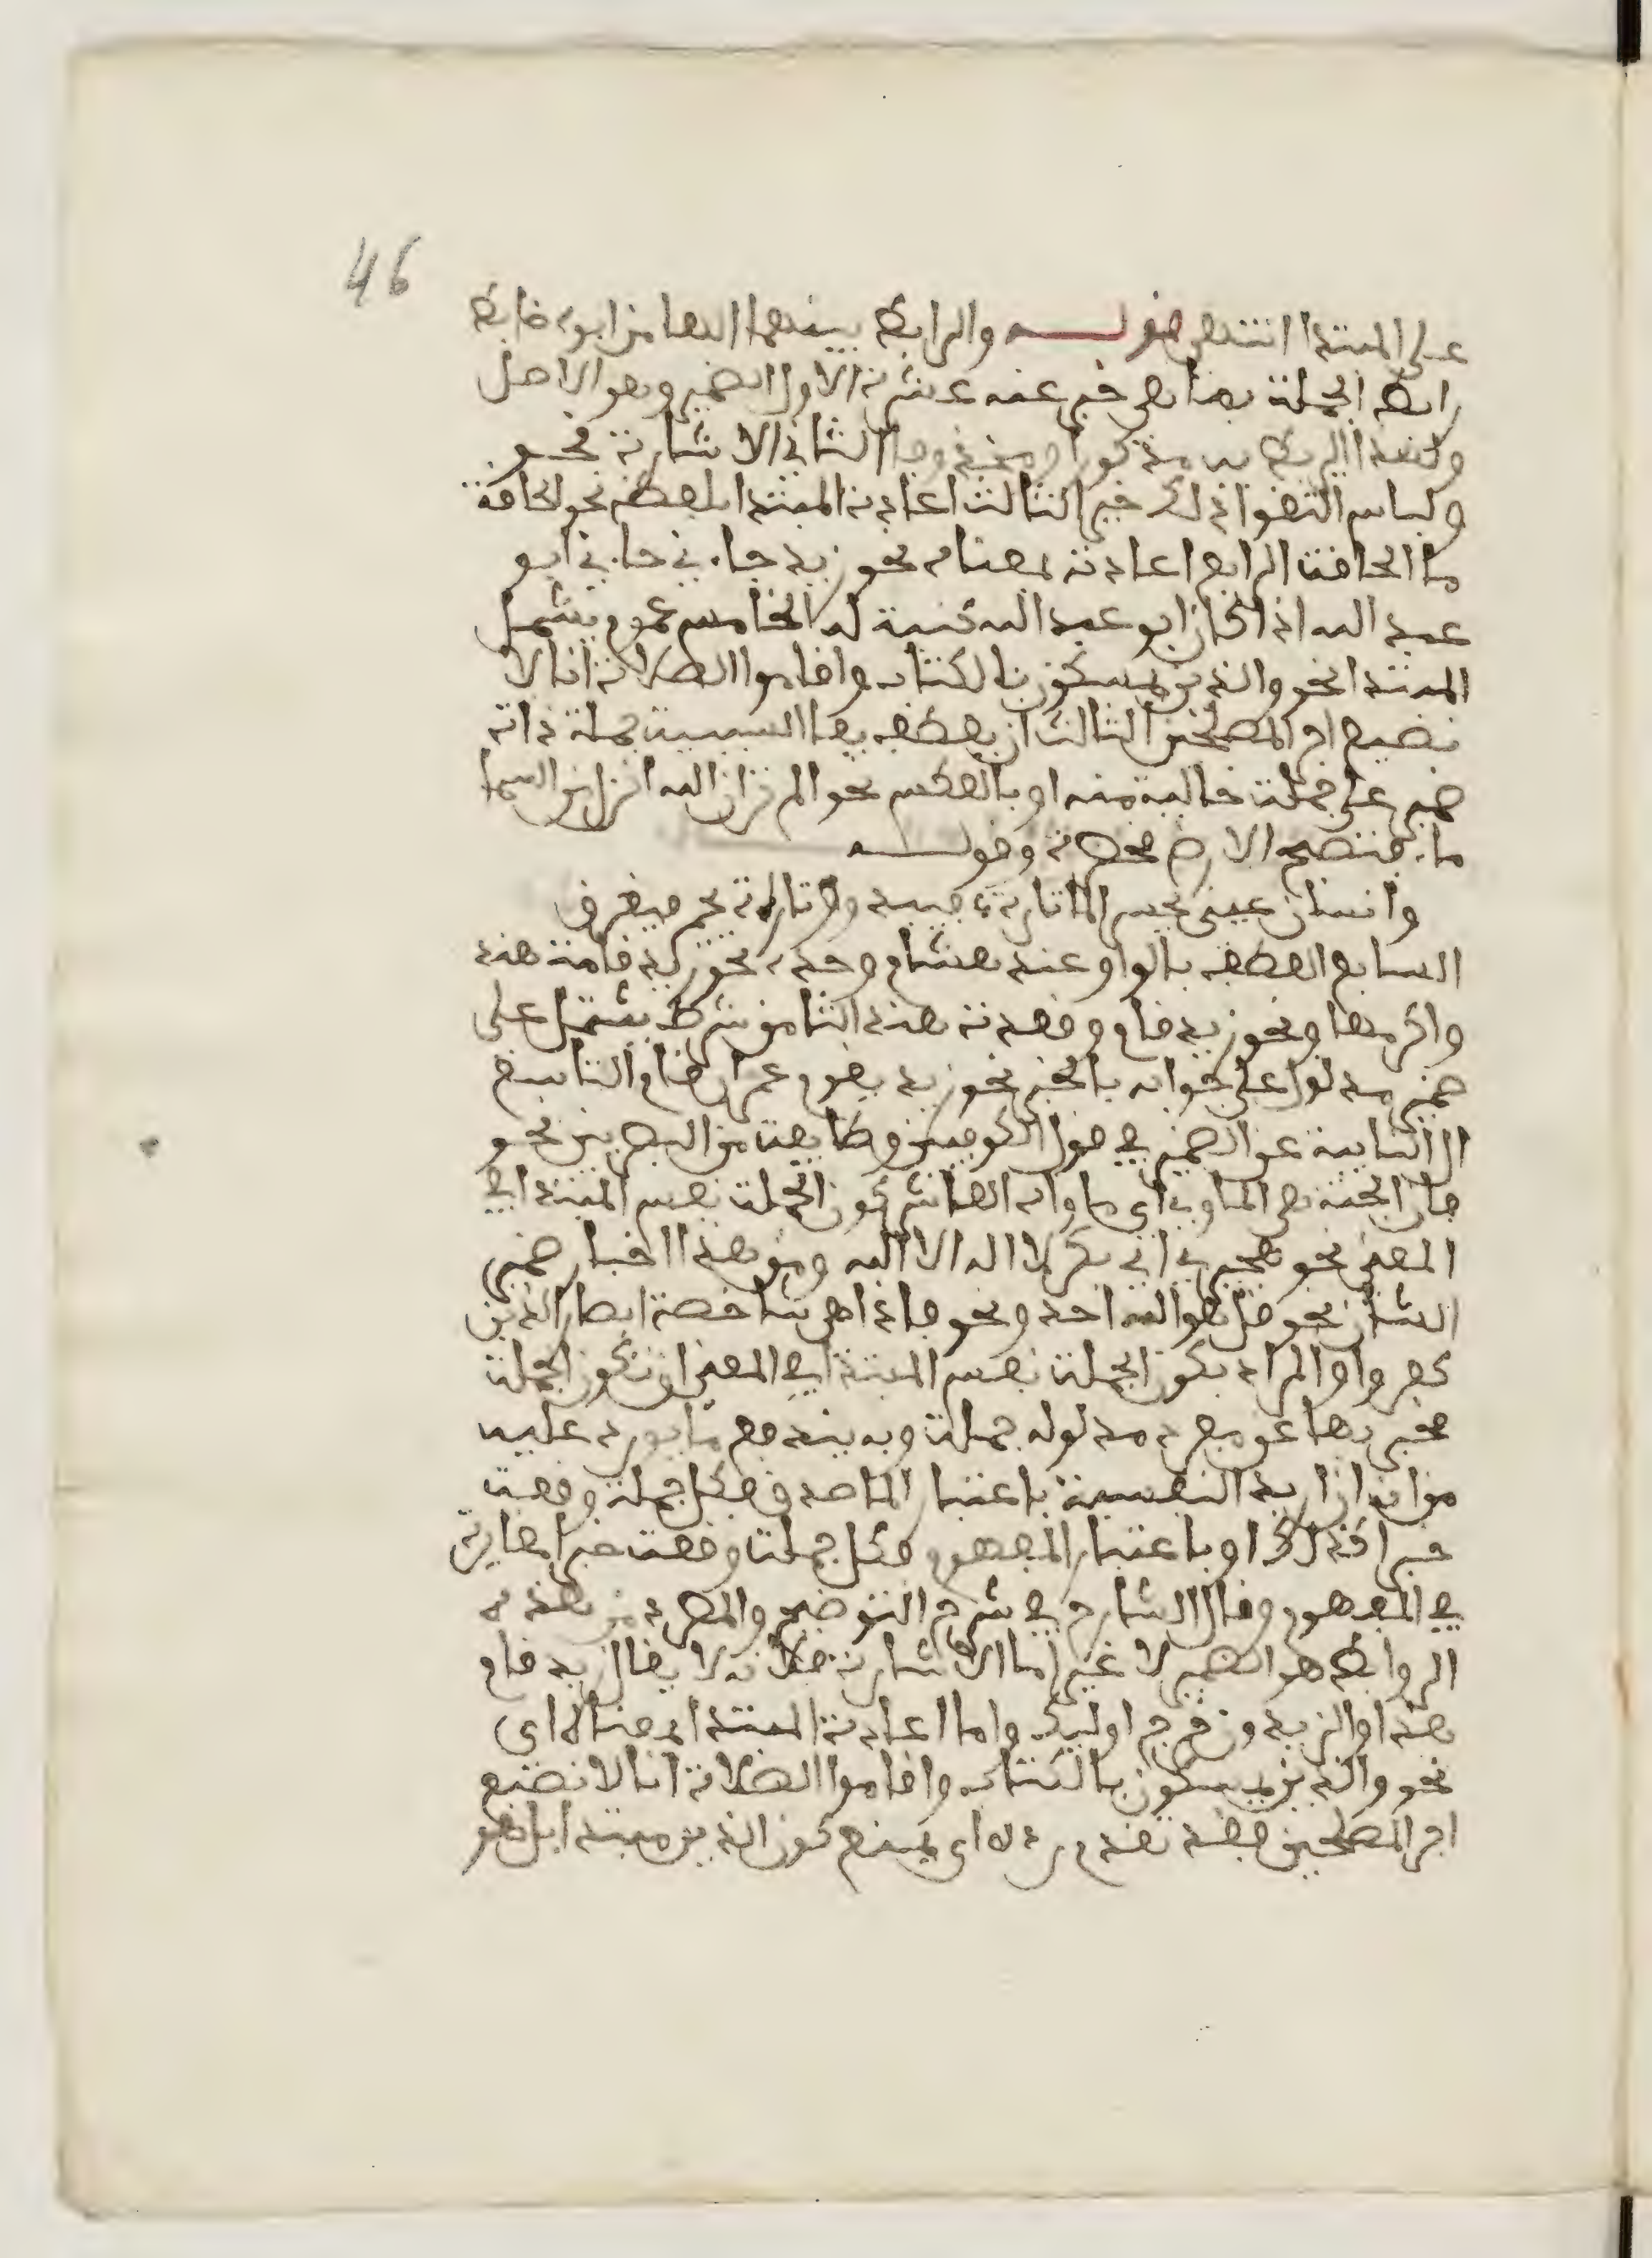 46
على المبتدا انتهى قولـــه والرابط بينهما الها من ابوه ضابط
رابط الجملة بما هي خبر عنه عشرة الاول الضمير وهو الاصل
ولهذا يربط به مذكورا ومحذوفا الثاني الاشارة نحو
ولباس التقوا ذلك خير الثالث اعادة المبتدا بلفظه نحو الحاقة
ما الحاقة الرابع اعادته بمعناه نحو زيد جاءني جاءني ابو
عبد الله اذا كان ابو عبد الله كنية له الخامس عموم يشمل
المبتدا نحو والذين يمسكون بالكتاب واقاموا الصلاة انا لا
نضيع اجر المصلحين الثالث ان يعطف بفا السببية جملة ذات
ضمير على جملة خالية منه او بالعكس نحو الم تر ان الله انزل من السما
ماء فتصبح الارض مخضرة وقولـــه
وانسان عيني يحسر الما تارة فيبدو وتارة يجم فيغرق
السابع العطف بالواو عند هشام وحده نحو زيد قامت هند
واكرمها ونحو زيد قام وقعدت هند الثامن شرط يشتمل على
ضمير مدلول على جوابه بالخبر نحو زيد يقوم عمرو ان قام التاسع
ال النايبة عن الضمير في قول الكوفيين وطايفة من البصريين نحو
فان الجنة هي الماوى اي ماواه العاشر كون الجملة نفس المبتدا في
المعنى نحو هجيرى ابي بكر لا اله الا الله ومن هذا اخبار ضمير
الشان نحو قل هو الله احد ونحو فاذا هي شاخصة ابصار الذين
كفروا والمراد بكون الجملة نفس المبتدا في المعنى ان تكون الجملة
مخبر بها عن مفرد مدلوله جملة وبه يندفع ما يورد عليه
من انه ان اريد النفسية باعتبار الماصدق فكل جملة وقعت
خبرا كذلك او باعتبار المفهوم فكل جملة وقعت خبرا مغايرة
في المفهوم وقال الشارح في شرح التوضيح والمطرد من هذه
الروابط هو الضمير لا غير اما الاشارة فلانه لا يقال زيد قام
هذا والزيدون خرج اوليك واما اعادة المبتدا بمعناه اي
نحو والذين يمسكون بالكتاب واقاموا الصلاة انا لا نضيع
اجر المصلحين فقد تقدم رده اي بمنع كون الذين مبتدا بل هو